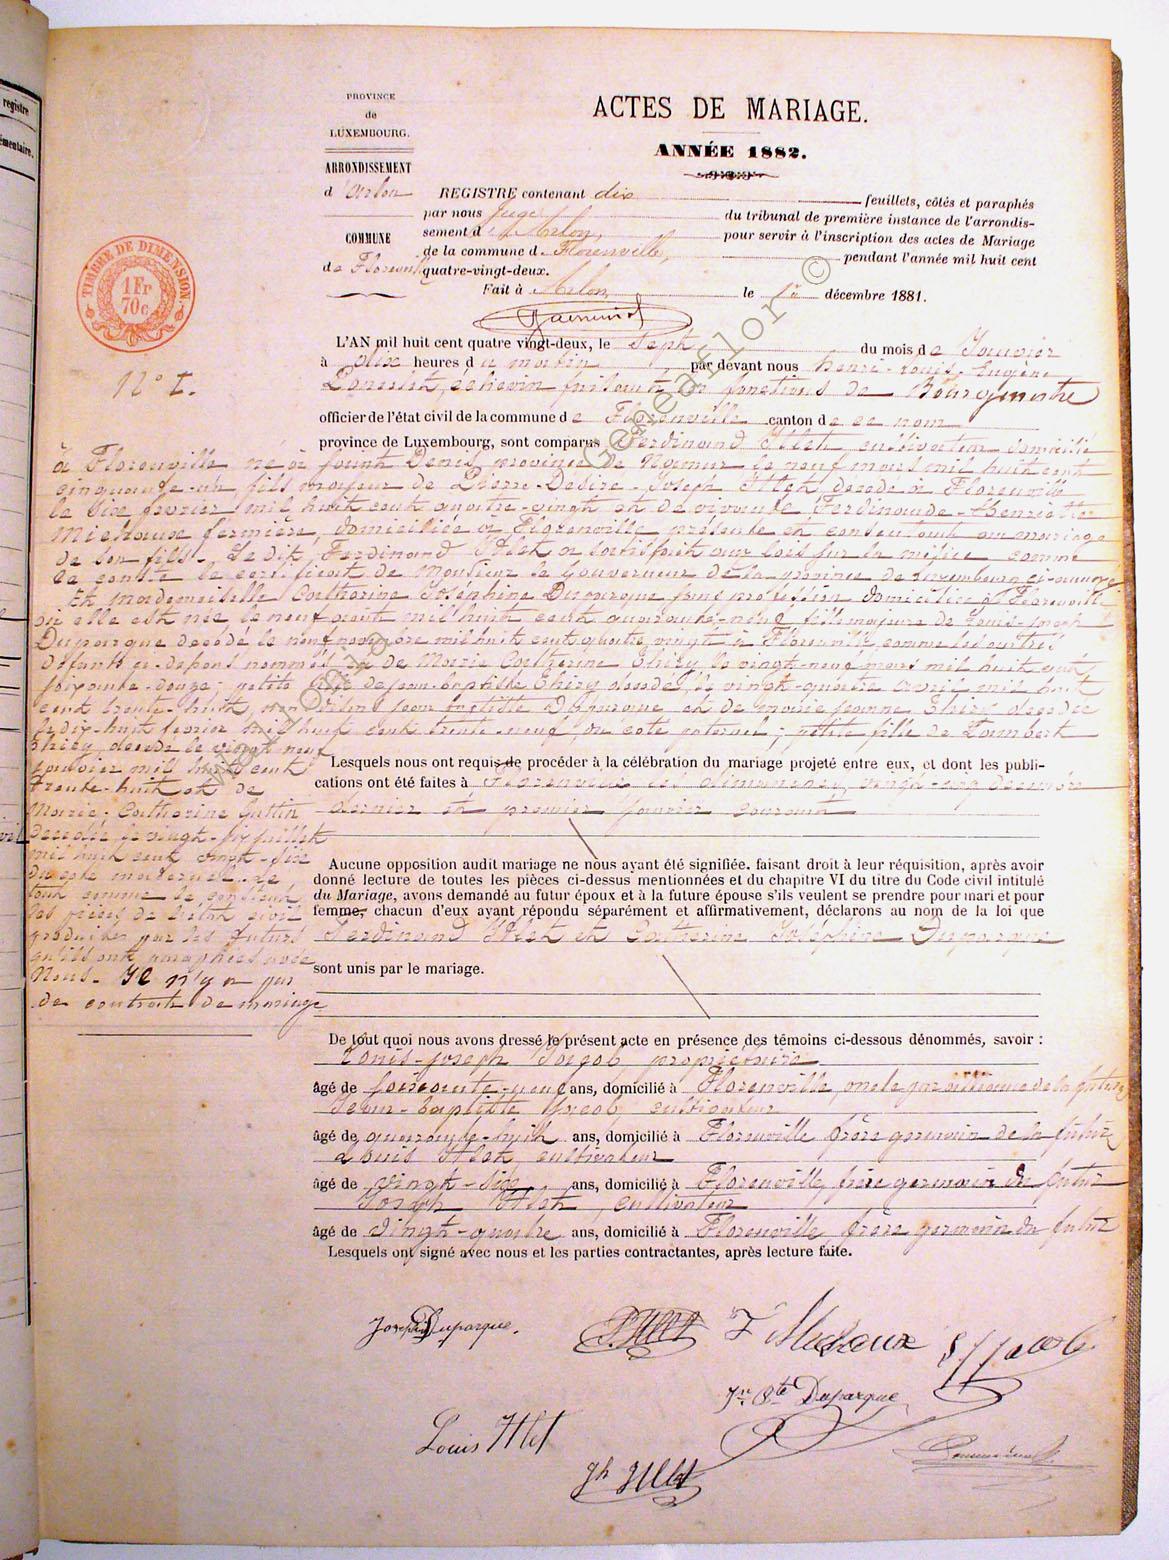 registre
émentaire.
PROVINCE
de
LUXEMBOURG.
ARRONDISSEMENT
d'Arlon
COMMUNE
de Florenv.
TIMBRE DE DIMENSION
1 Fr
70 c
N° 1.
ACTES DE MARIAGE.
ANNÉE 1882.
REGISTRE contenant dix feuillets, côtés et paraphés
par nous Juge du tribunal de première instance de l'arrondis-
sement d'Arlon, pour servir à l'inscription des actes de Mariage
de la commune de Florenville, pendant l'année mil huit cent
quatre-vingt-deux.
Fait à Arlon, le 1er décembre 1881.
L'AN mil huit cent quatre vingt-deux, le sept du mois de Janvier
à dix heures du matin, par devant nous Henri-Louis-Eugène
échevin faisant les fonctions de Bourgmestre
officier de l'état civil de la commune de Florenville canton de ce nom
province de Luxembourg, sont comparus Ferdinand Itlet, cultivateur domicilié
à Florenville né à Saint Denis province de Namur le neuf mars mil huit cent
cinquante-un fils majeur de Pierre-Désiré-Joseph Itlet décédé à Florenville
le six février mil huit cent quatre-vingt et de vivante Ferdinande-Henriette
Michaux fermière, domiciliée à Florenville présente et consentant au mariage
de son fils. Le dit Ferdinand Itlet a satisfait aux lois sur la milice comme
le conste le certificat de Monsieur le Gouverneur de la province de Luxembourg ci-annexé
Et mademoiselle Catherine Joséphine Duparque sans profession domiciliée à Florenville
où elle est née le neuf août mil huit cent quarante-neuf fille majeure de Louis-Joseph
Duparque décédé le neuf novembre mil huit cent quatre vingt à Florenville, comme les autres
défunts ci-après nommés et de Marie Catherine Thiry le vingt-neuf mars mil huit cent
soixante-douze; petite fille de Jean-Baptiste Thiry décédé le vingt-quatre avril mil huit
cent trente-huit, Jean Baptiste Duparque et de marie jeanne Thiry décédée
le dix-huit février mil huit cent trente-neuf du côté paternel; petite fille de Lambert
Thiry décédé le vingt neuf
janvier mil huit cent
trente-huit et de
Marie-Catherine Guttin
décédée le vingt-six juillet
mil huit cent vingt-six
du côté maternel. Le
tout comme le constatent
les pièces de l'état civil
produites par les futurs
qu'ils ont paraphées avec
Nous. Il n'y a pas
de contrat de mariage
Lesquels nous ont requis de procéder à la célébration du mariage projeté entre eux, et dont les publi-
cations ont été faites à Florenville les dimanches, vingt-cinq décembre
dernier et premier janvier courant
Aucune opposition audit mariage ne nous ayant été signifiée. faisant droit à leur réquisition, après avoir
donné lecture de toutes les pièces ci-dessus mentionnées et du chapitre VI du titre du Code civil intitulé
du Mariage, avons demandé au futur époux et à la future épouse s'ils veulent se prendre pour mari et pour
femme, chacun d'eux ayant répondu séparément et affirmativement, déclarons au nom de la loi que
Ferdinand Itlet et Catherine Joséphine Duparque
sont unis par le mariage.
De tout quoi nous avons dressé le présent acte en présence des témoins ci-dessous dénommés, savoir :
Louis-Joseph Jacob propriétaire
âgé de soixante-neuf ans, domicilié à Florenville, oncle par alliance de la future
Jean-Baptiste Jacob cultivateur
âgé de quarante-huit ans, domicilié à Florenville frère germain de la future
Louis Itlet, cultivateur
âgé de vingt-six ans, domicilié à Florenville, frère germain du futur
Joseph Itlet, cultivateur
âgé de vingt-quatre ans, domicilié à Florenville frère germain du futur
Lesquels ont signé avec nous et les parties contractantes, après lecture faite.
Joséphine Duparque.
F Michaux
Jn Bte Duparque
Louis Itlet
Jh Itlet
www.onia GeneaFlor ©